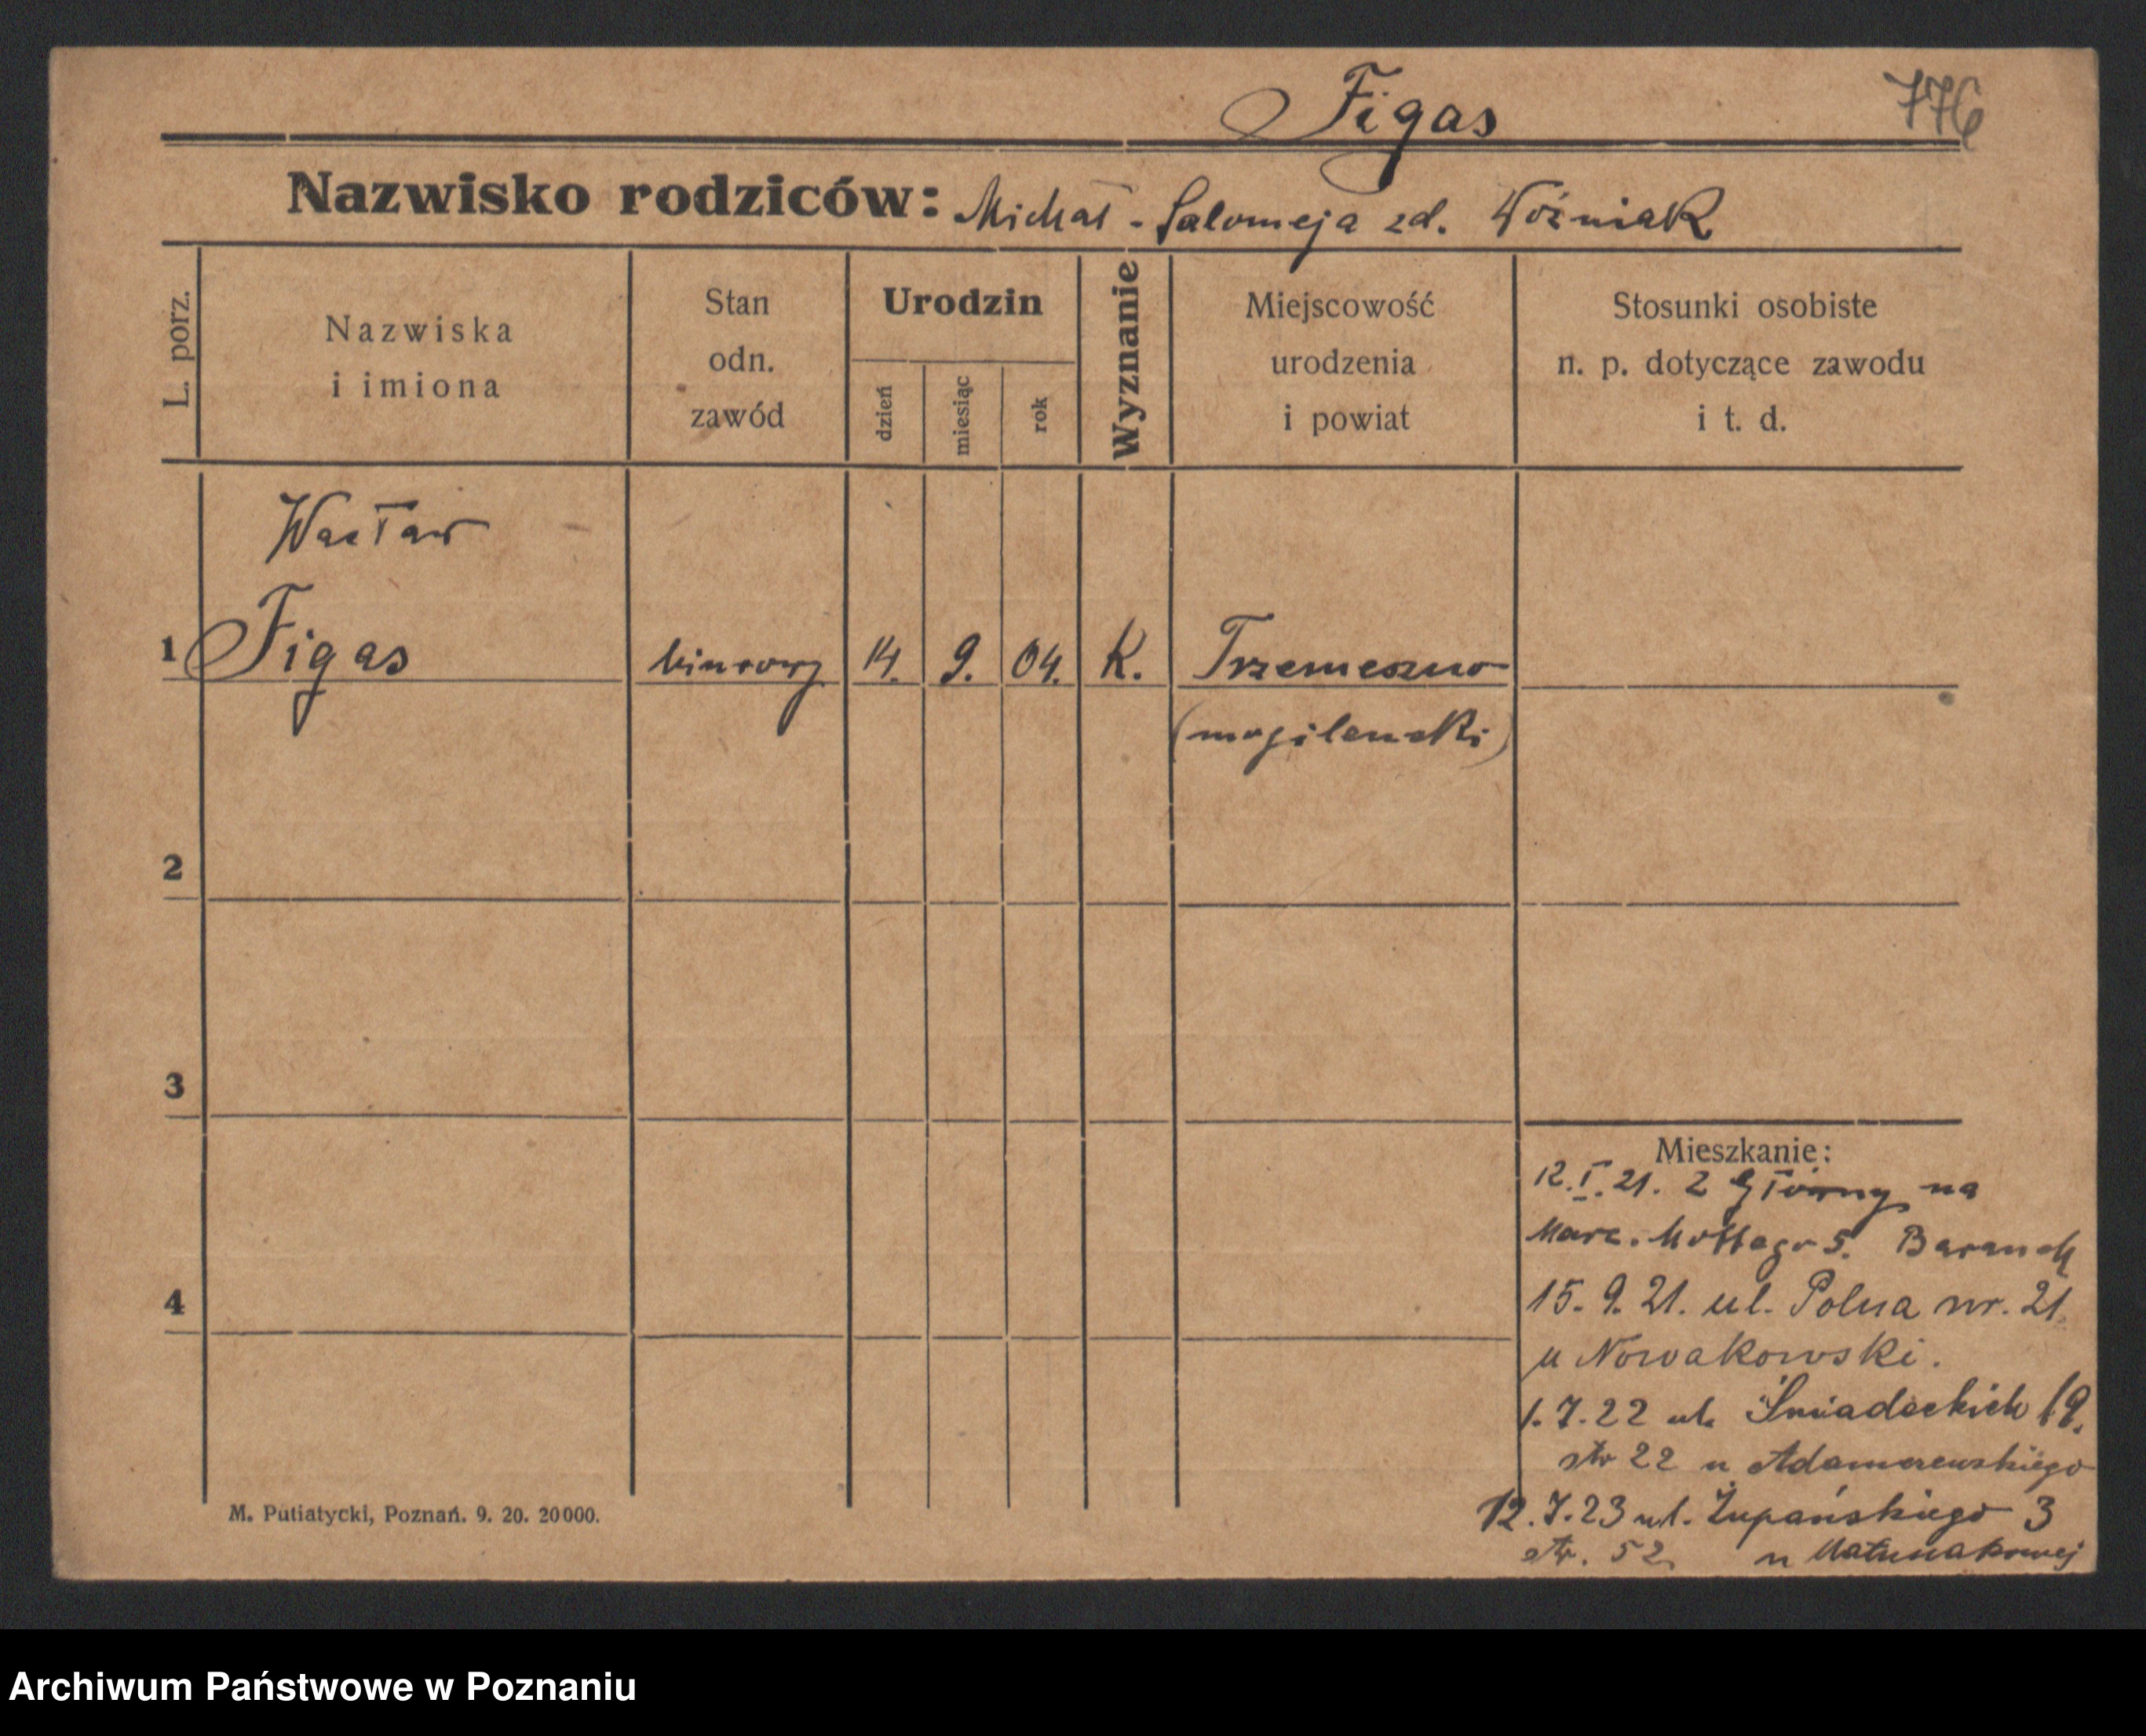 Figas
776
Nazwisko rodziców: Michał - Salomeja zd. Woźniak
L. porz.
Nazwiska
i imiona
Stan
odn.
zawód
Urodzin
dzień
miesiąc
rok
Wyznanie
Miejscowość
urodzenia
i powiat
Stosunki osobiste
n. p. dotyczące zawodu
i t. d.
Wacław
1 Figas biurowy 14. 9. 04. K. Trzemeszno
(mogilenski)
2
3
4
Mieszkanie:
12.I.21. z Główny na
Marc. Mottego 5.
15. 9. 21. ul. Polna nr. 21.
u Nowakowski.
1.7.22 ul. Śniadeckich 19.
str 22 u Adamczewskiego
12.7.23 ul. Żupańskiego 3
str. 52. u
M. Putiatycki, Poznań. 9. 20. 20000.
Archiwum Państwowe w Poznaniu